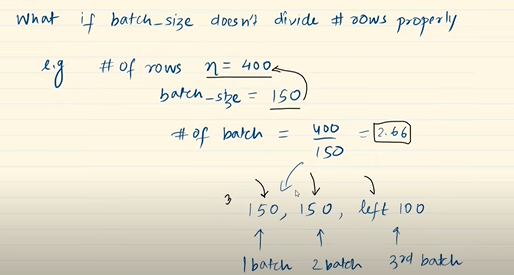 What if batch_size doesn't divide # rows properly
e.g # of rows n = 400
batch_size = 150
# of batch = 400/150 = 2.66
3 150, 150, left 100
1 batch 2 batch 3rd batch